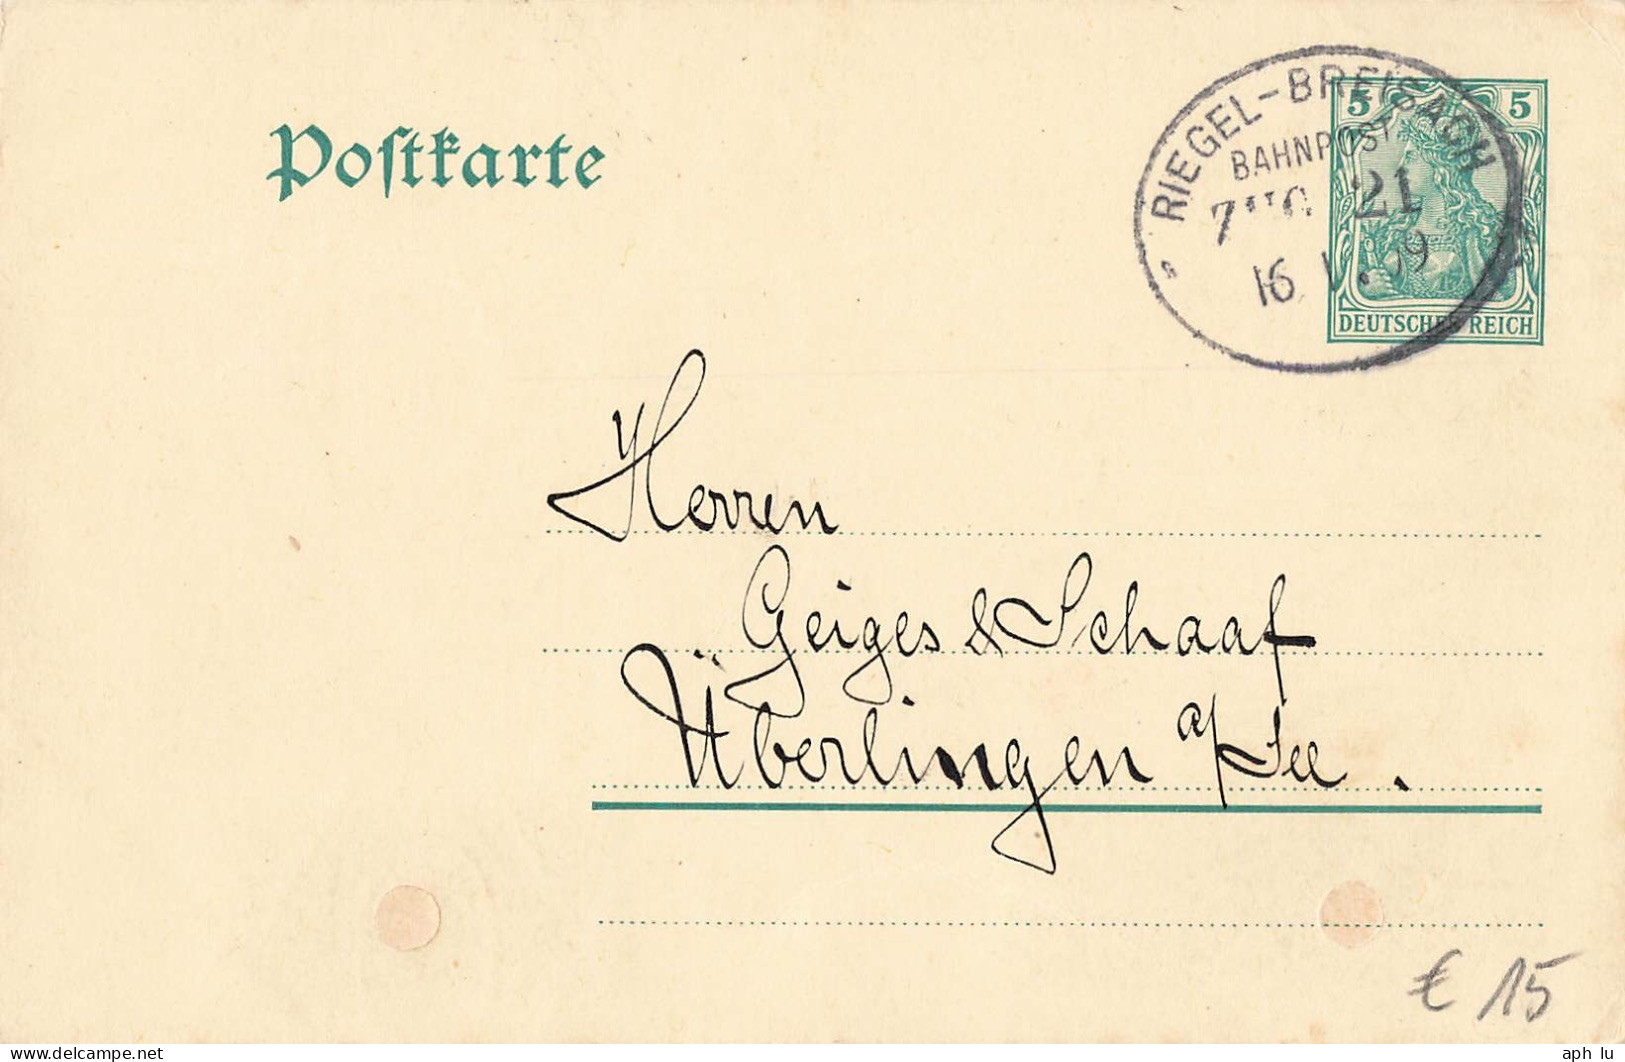 Postkarte
RIEGEL-BREISACH
BAHNPOST
ZUG 21
16
5 5
DEUTSCHES REICH
Herren
Geiges & Schaaf
Überlingen a/See.
€ 15
www.delcampe.net
aph_lu